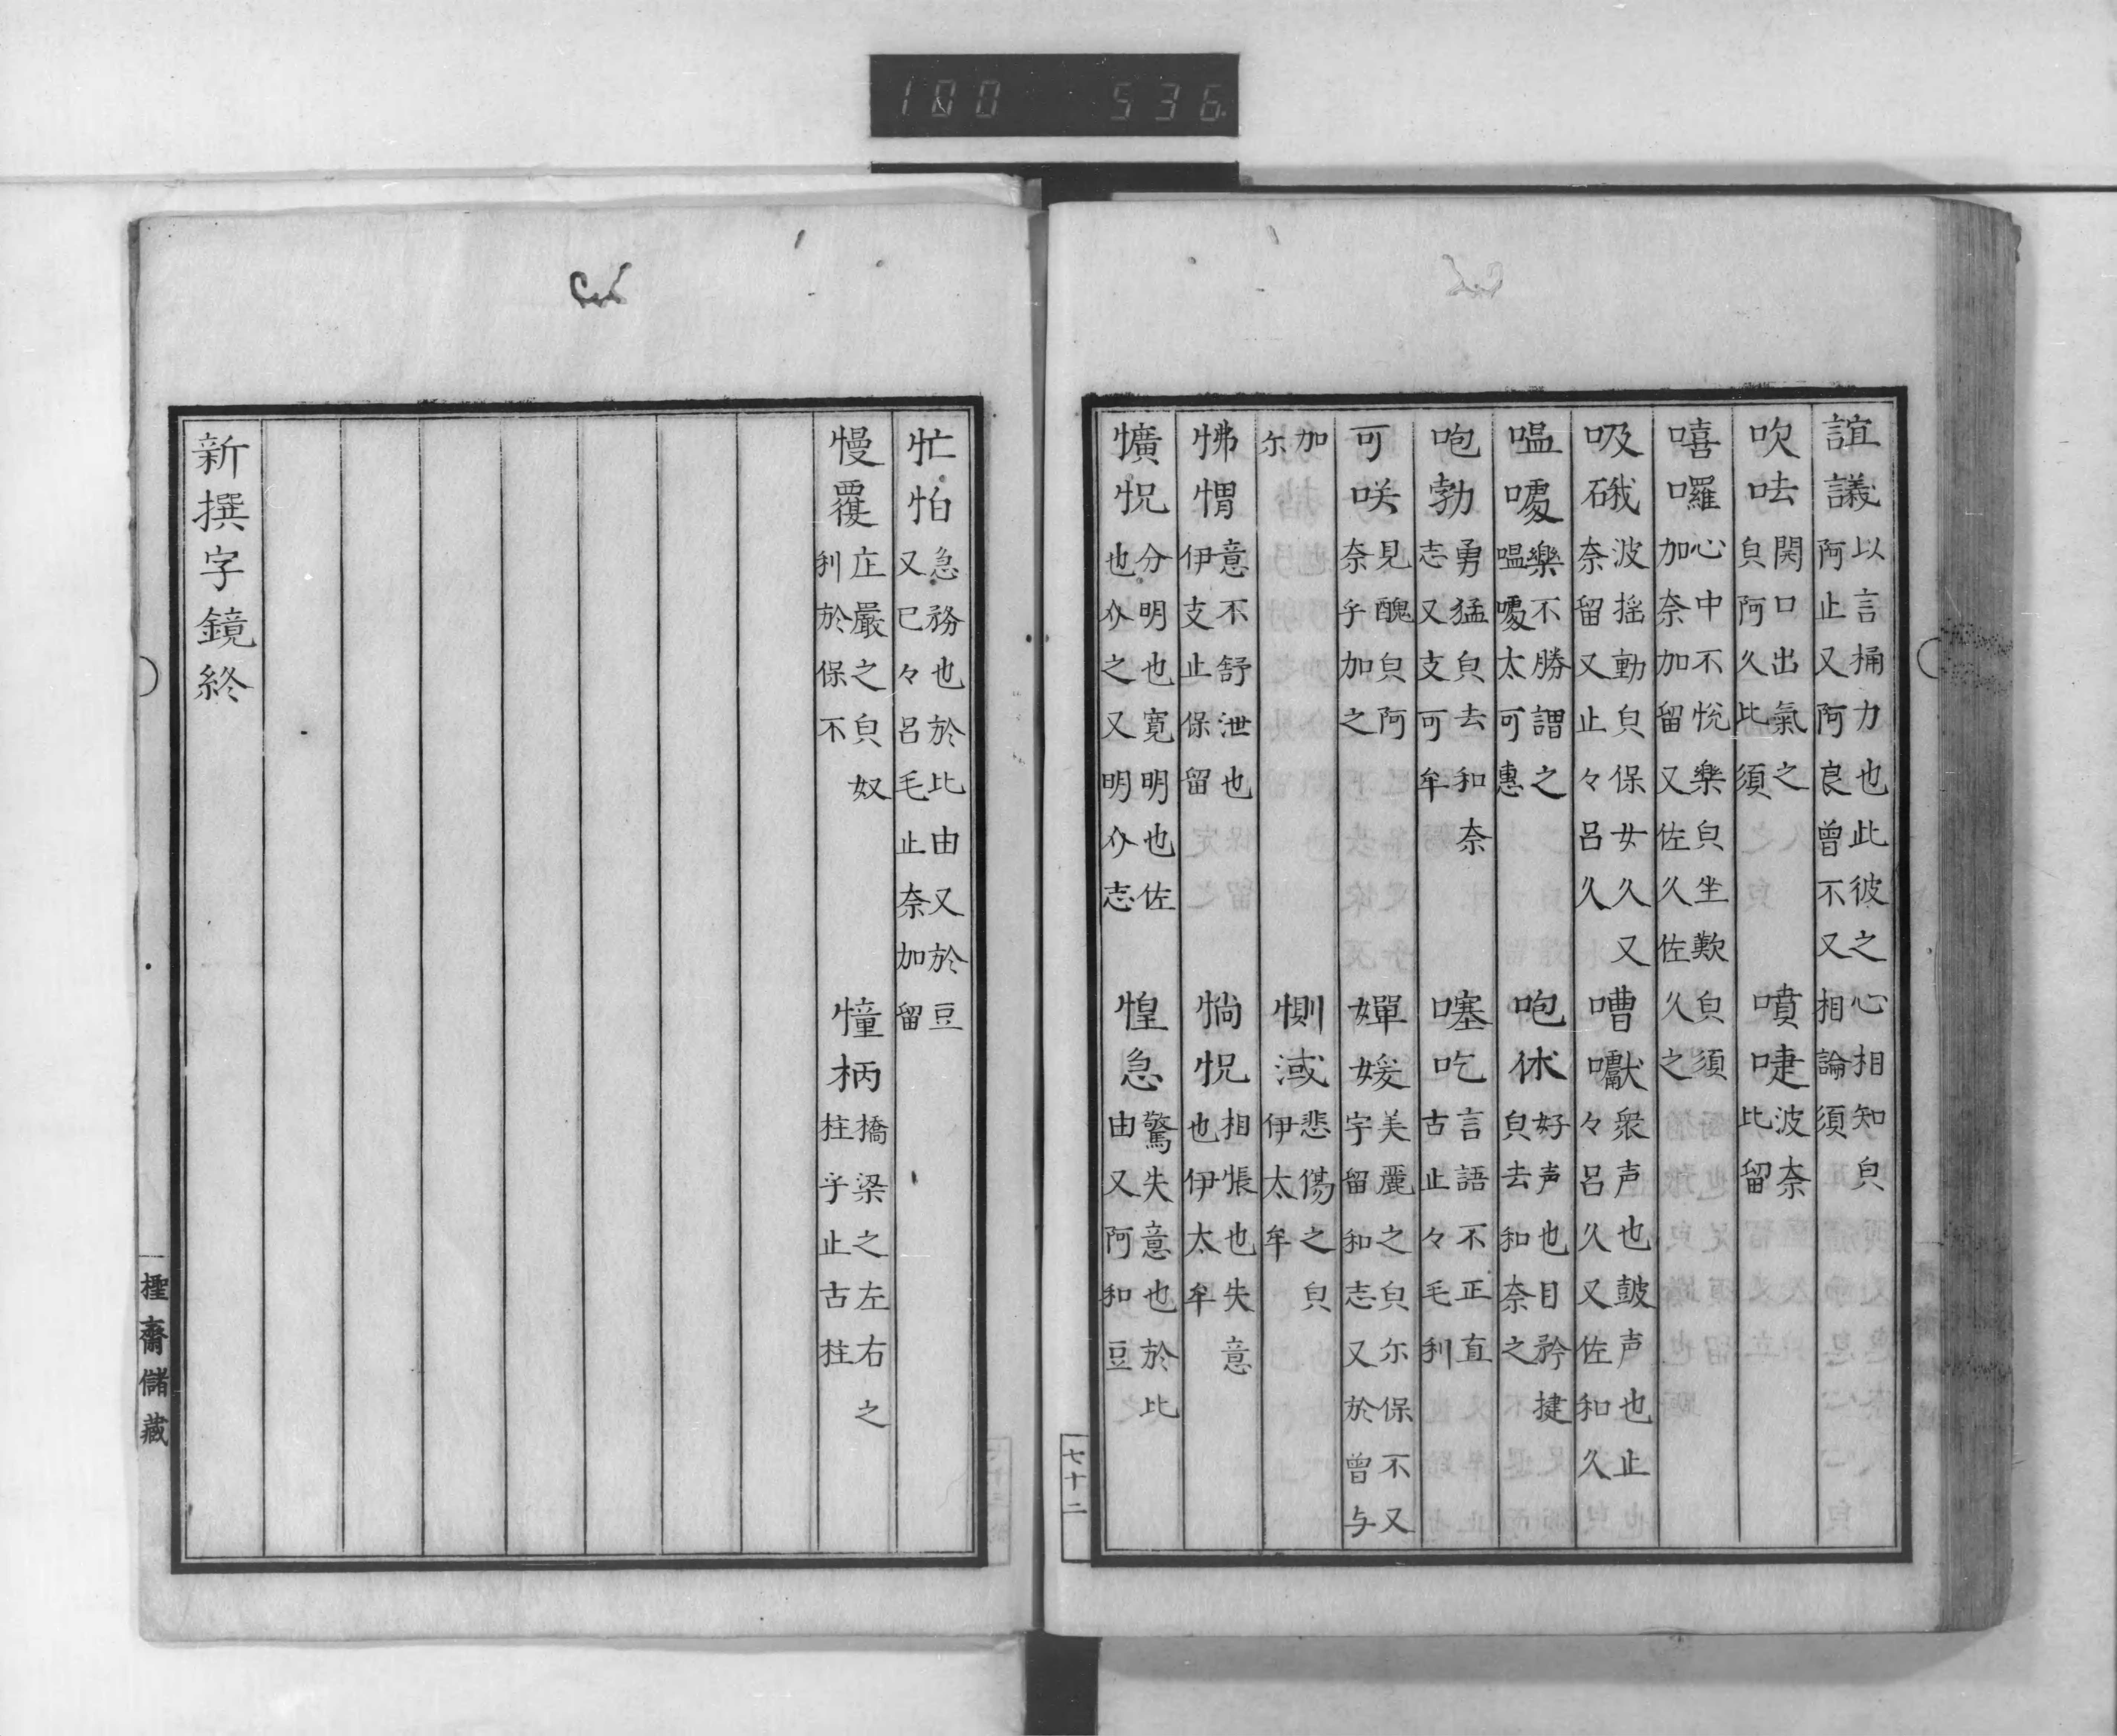 100 536
誼議 以言桶力也此彼之心相知皃
阿止又阿良曾不又相論須
吹呿 関口出氣之
皃阿久比須
噴嚏 波奈
比留
嘻囉 心中不悅樂皃坐歎皃須
加奈加留又佐久佐久之
吸硪 波揺動皃保女久又
奈留又止々呂久
嘈囐 衆声也皷声也止
々呂久又佐和久
嗢噱 樂不勝謂之
嗢噱太可惠
咆休 好声也目矜揵
皃去和奈之
咆勃 勇猛皃去和奈
志又支可牟
噻吃 言語不正直
古止々毛利
可咲 見醜皃阿
奈乎加之
嬋媛 美麗之皃尓保不又
宇留和志又於曾与
加
尓
惻淢 悲傷之皃
伊太牟
怫愲 意不舒泄也
伊支止保留
惝怳 相悵也失意
也伊太牟
懭怳 分明也寛明也佐
也介之又明介志
惶急 驚失意也於比
由又阿和豆
忙怕 急務也於比由又於豆
又已々呂毛止奈加留
慢覆 庄嚴之皃奴
利於保不
憧柄 橋梁之左右之
柱乎止古柱
新撰字鏡終
七十二
檉齋儲藏